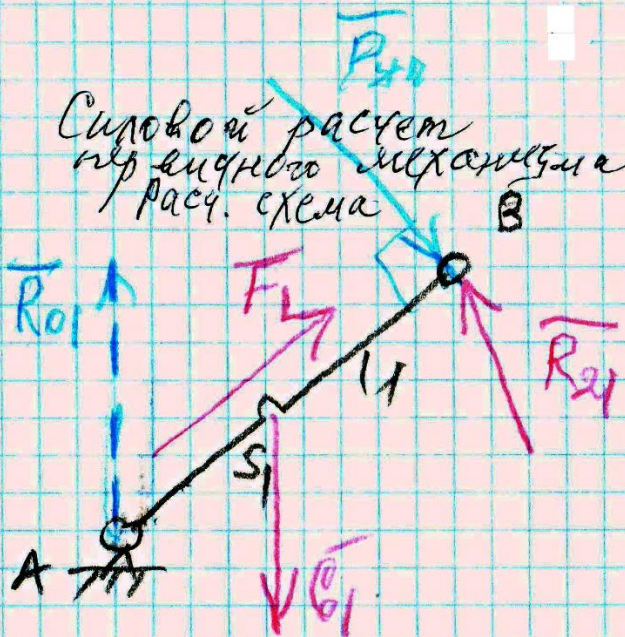 Pур
Силовой расчет
первичного механизма
Расч. схема
B
R01
F1
R21
1
S1
A
G1